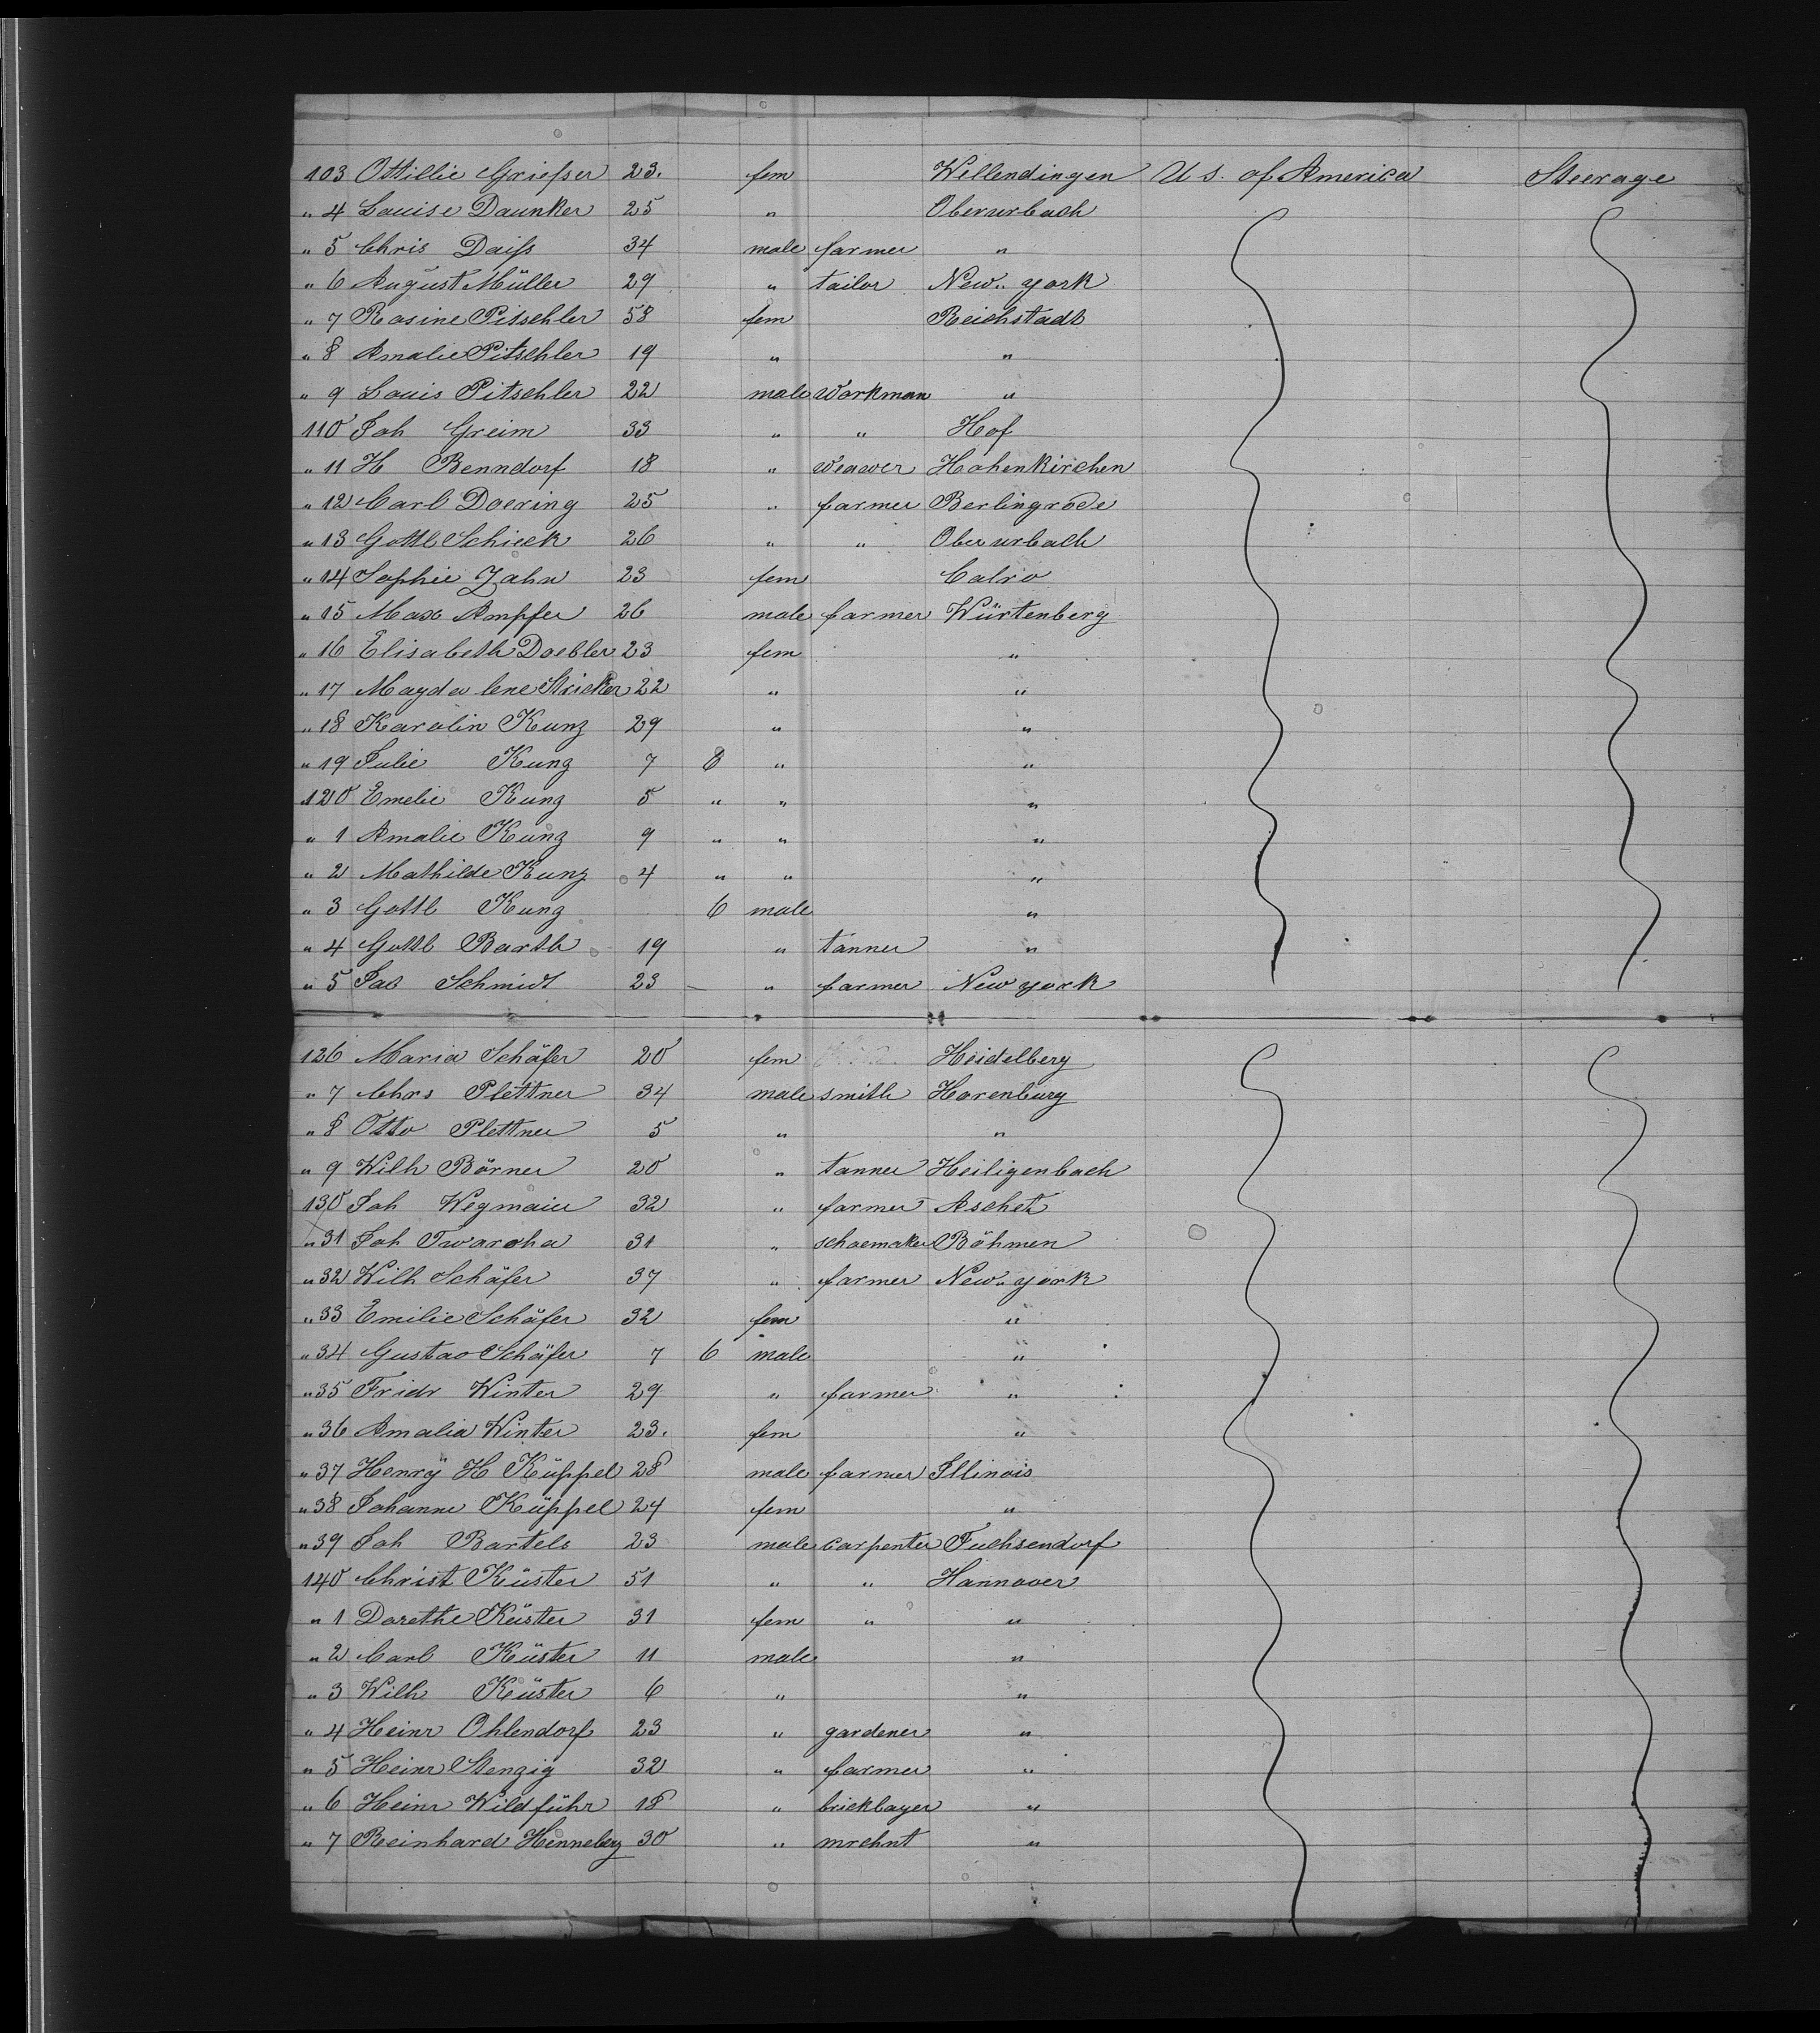 103 Ottillie Grießer 23. fem Wellendingen U S. of America Steerage
" 4 Louise Daunker 25 " Oberurbach
" 5 Chris Daiß 34 male farmer "
" 6 August Müller 29 " tailor New. york
" 7 Rosine Pitschler 58 fem Reichstadt
" 8 Amalie Pitschler 19 " "
" 9 Louis Pitschler 22 male workman "
110 Joh Greim 33 " " Hof
" 11 H Benndorf 18 " weawer Hohenkirchen
" 12 Carl Doering 25 " farmer Berlingrode
" 13 Gottl Schieck 26 " " Oberurbach
" 14 Sophie Zahn 23 fem Calro
" 15 Max Ampfer 26 male farmer Würtenberg
" 16 Elisabeth Doebler 23 fem "
" 17 Magdalene Stricker 22 " "
" 18 Karolin Kunz 29 " "
" 19 Julie Kunz 7 8 " "
120 Emelie Kunz 5 " " "
" 1 Amalie Kunz 9 " " "
" 2 Mathilde Kunz 4 " " "
" 3 Gottl Kunz 6 male "
" 4 Gottl Barth 19 " tanner "
" 5 Jac Schmidt 23 – " farmer New york
126 Maria Schäfer 20 fem Heidelberg
" 7 Chrs Plettner 34 male smith Horenburg
" 8 Otto Plettner 5 " "
" 9 Wilh Börner 20 " tanner Heiligenbach
130 Joh Wegmaier 32 " farmer Aschet
" 31 Joh Twaroha 31 " schoemaker Böhmen
" 32 Wilh Schäfer 37 " farmer New. york
" 33 Emilie Schäfer 32 fem "
" 34 Gustav Schäfer 7 6 male "
" 35 Fridr Winter 29 " farmer "
" 36 Amalia Winter 23. fem "
" 37 Henrÿ H Küppel 28 male farmer Illinois
" 38 Johanne Küppel 24 fem "
" 39 Joh Bartels 23 male carpenter Fuchsendorf
140 Christ Küster 51 " " Hannover
" 1 Dorethe Küster 31 fem " "
" 2 Carl Küster 11 male "
" 3 Wilh Küster 6 " "
" 4 Heinr Ohlendorf 23 " gardener "
" 5 Heinr Stenzig 32 " farmer "
" 6 Heinr Wildführ 18 " bricklayer "
" 7 Reinhard Henneberg 30 " mrchnt "